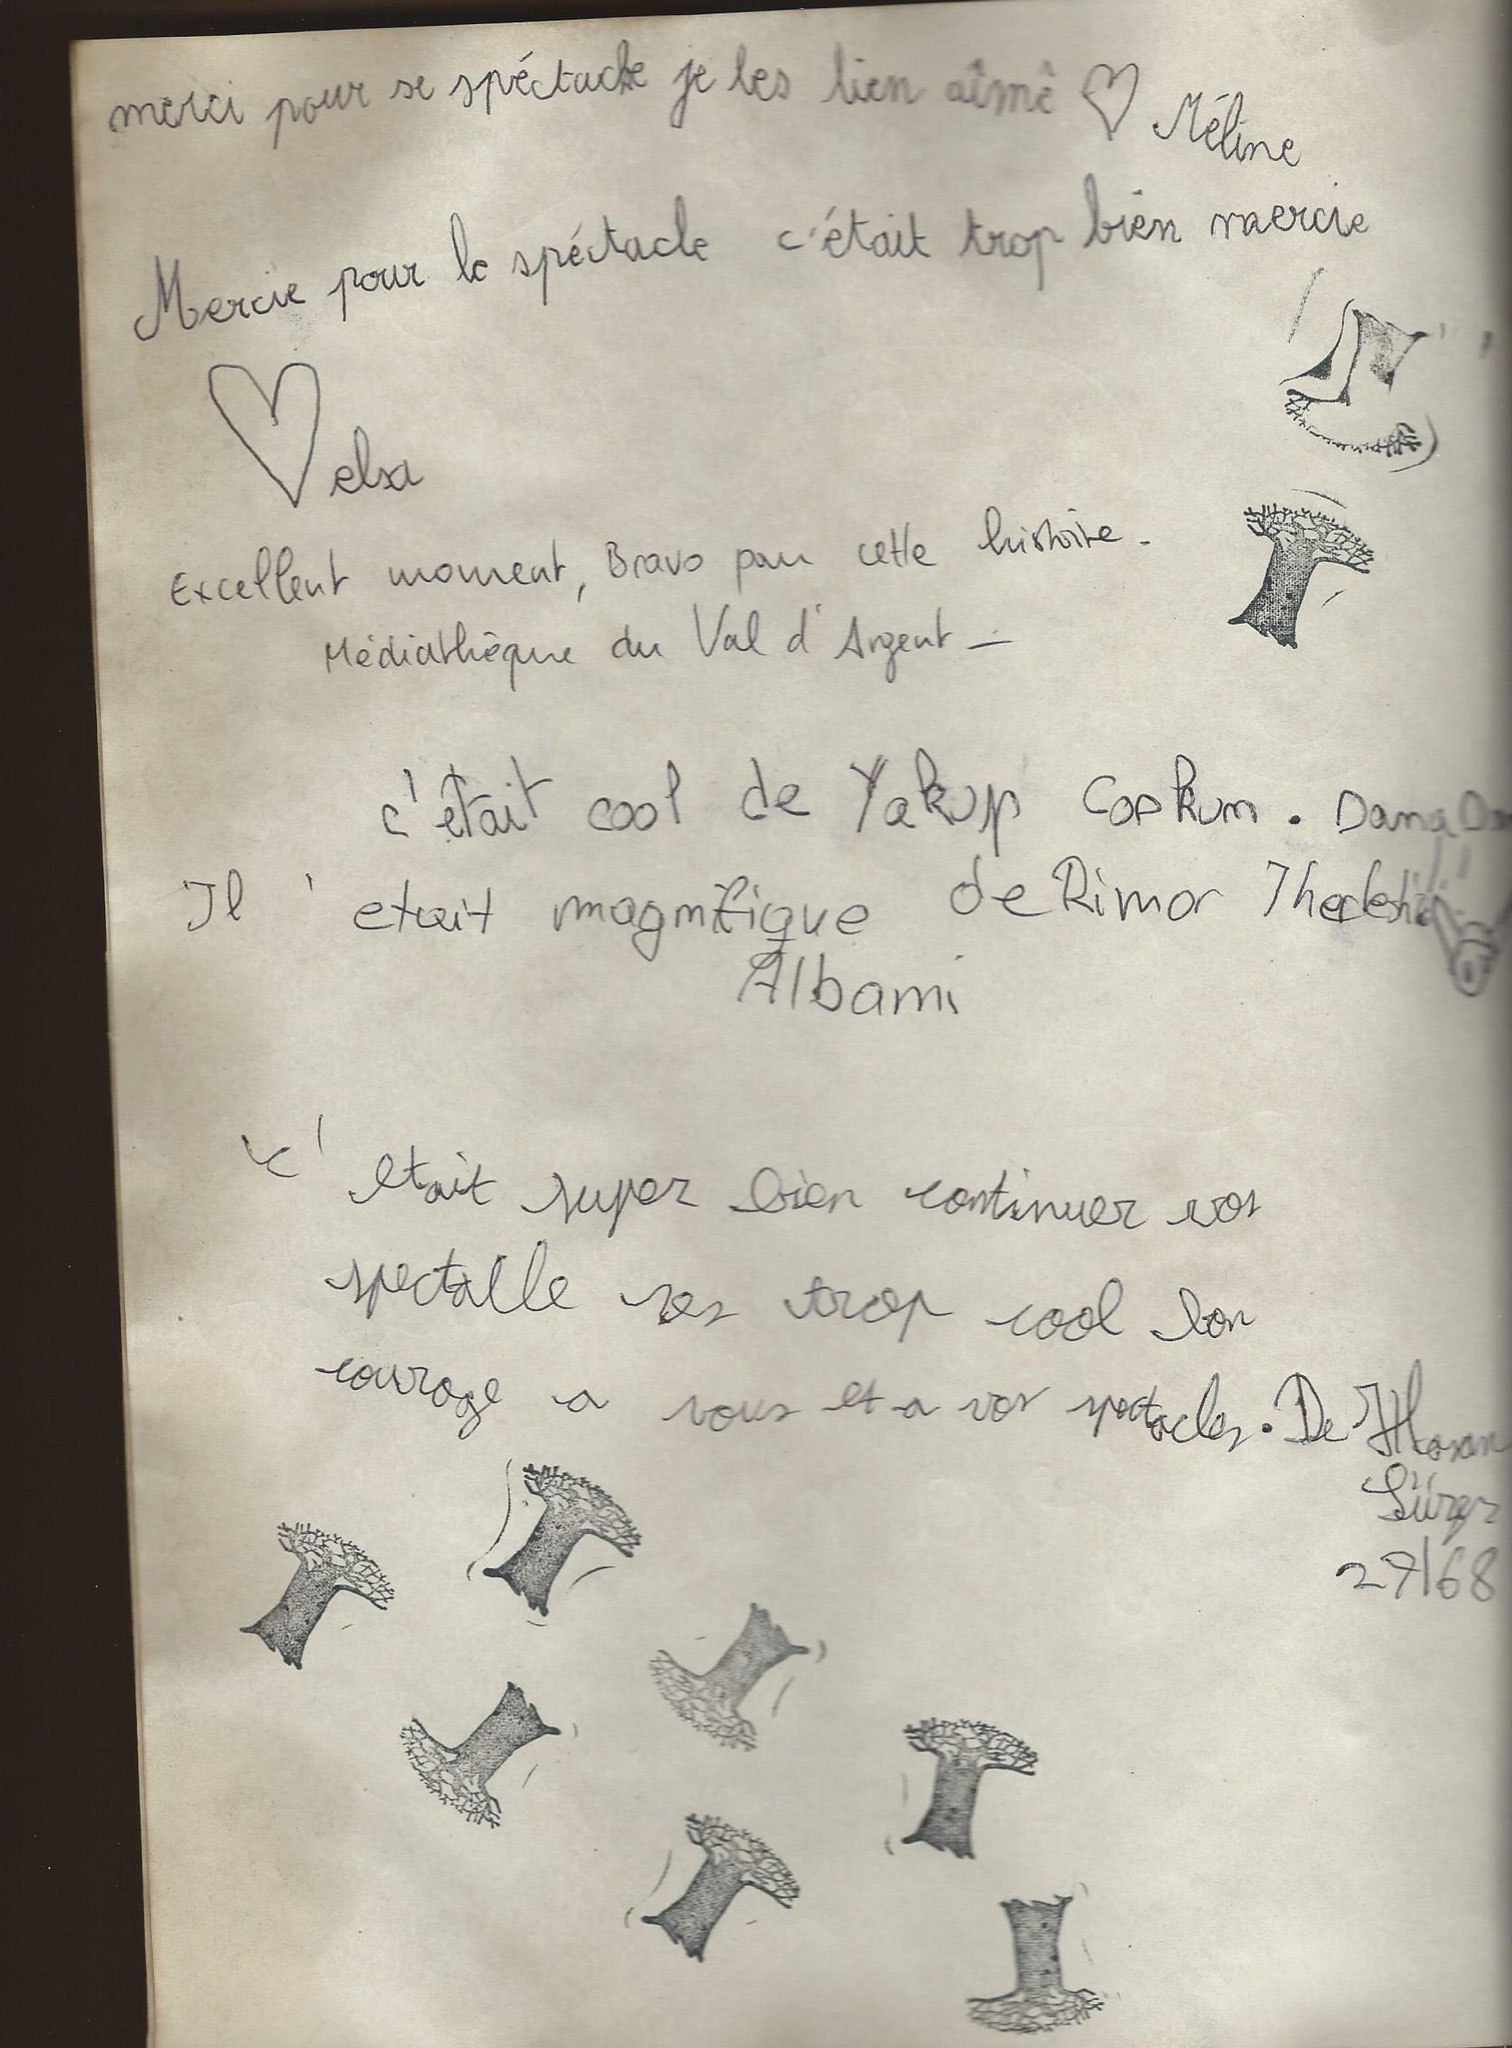 merci pour se spéctacle je les bien aîmê Méline
Mercie pour le spéctacle c'était trop bien mercie
elsa
Excellent moment, Bravo pour cette histoire.
Médiathèque du Val d'Argent -
c'était cool de Yakup Coskum. Dana
Il ' etait magnifique de Rimor
Albami
c' etait super bien continuer vos
spectalle ses trop cool bon
courage a vous et a vos spectacles. De Hasan
Sürer
27/68